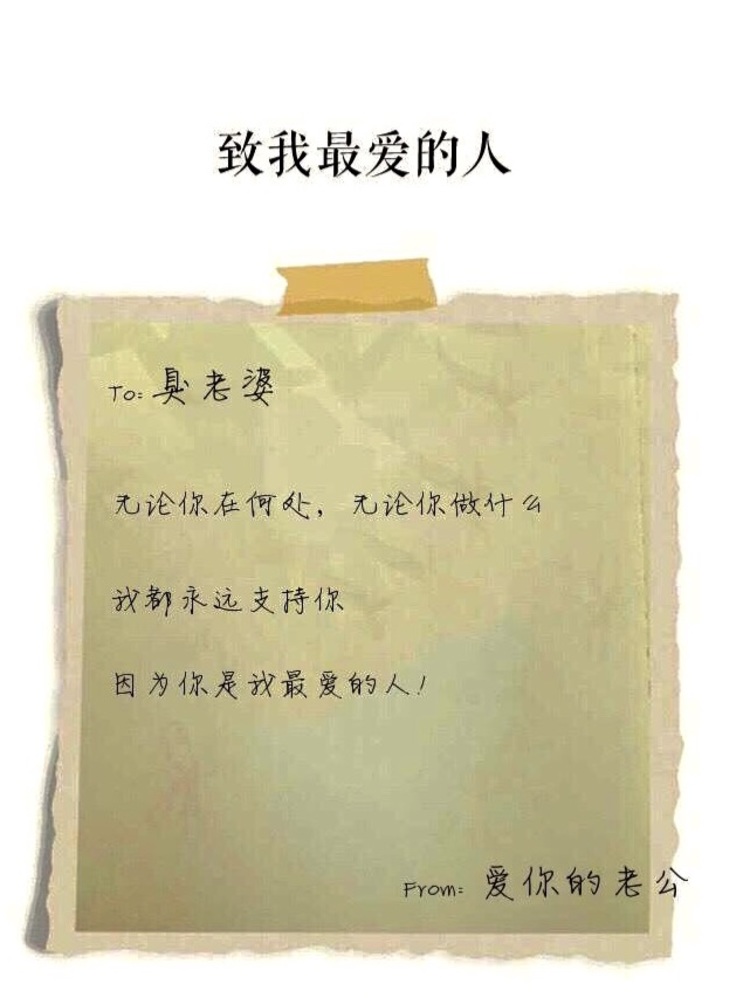 致我最爱的人
To: 臭老婆
无论你在何处，无论你做什么
我都永远支持你
因为你是我最爱的人！
From: 爱你的老公